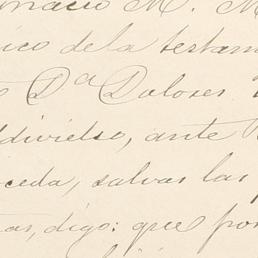 nacio M. M
ico dela testam
Dª Dolores
ldivielso, ante
ceda, salvas las
as, digo: que por